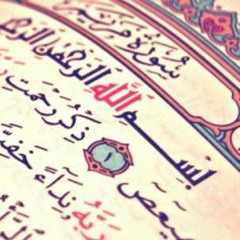 سُورَةُ مَرْيَمَ
بِسْمِ اللَّهِ الرَّحْمَٰنِ
ـيعص ١ ذِكْرُ رَحْمَتِ
رَبَّهُ نِدَآءً خَفِيًّا